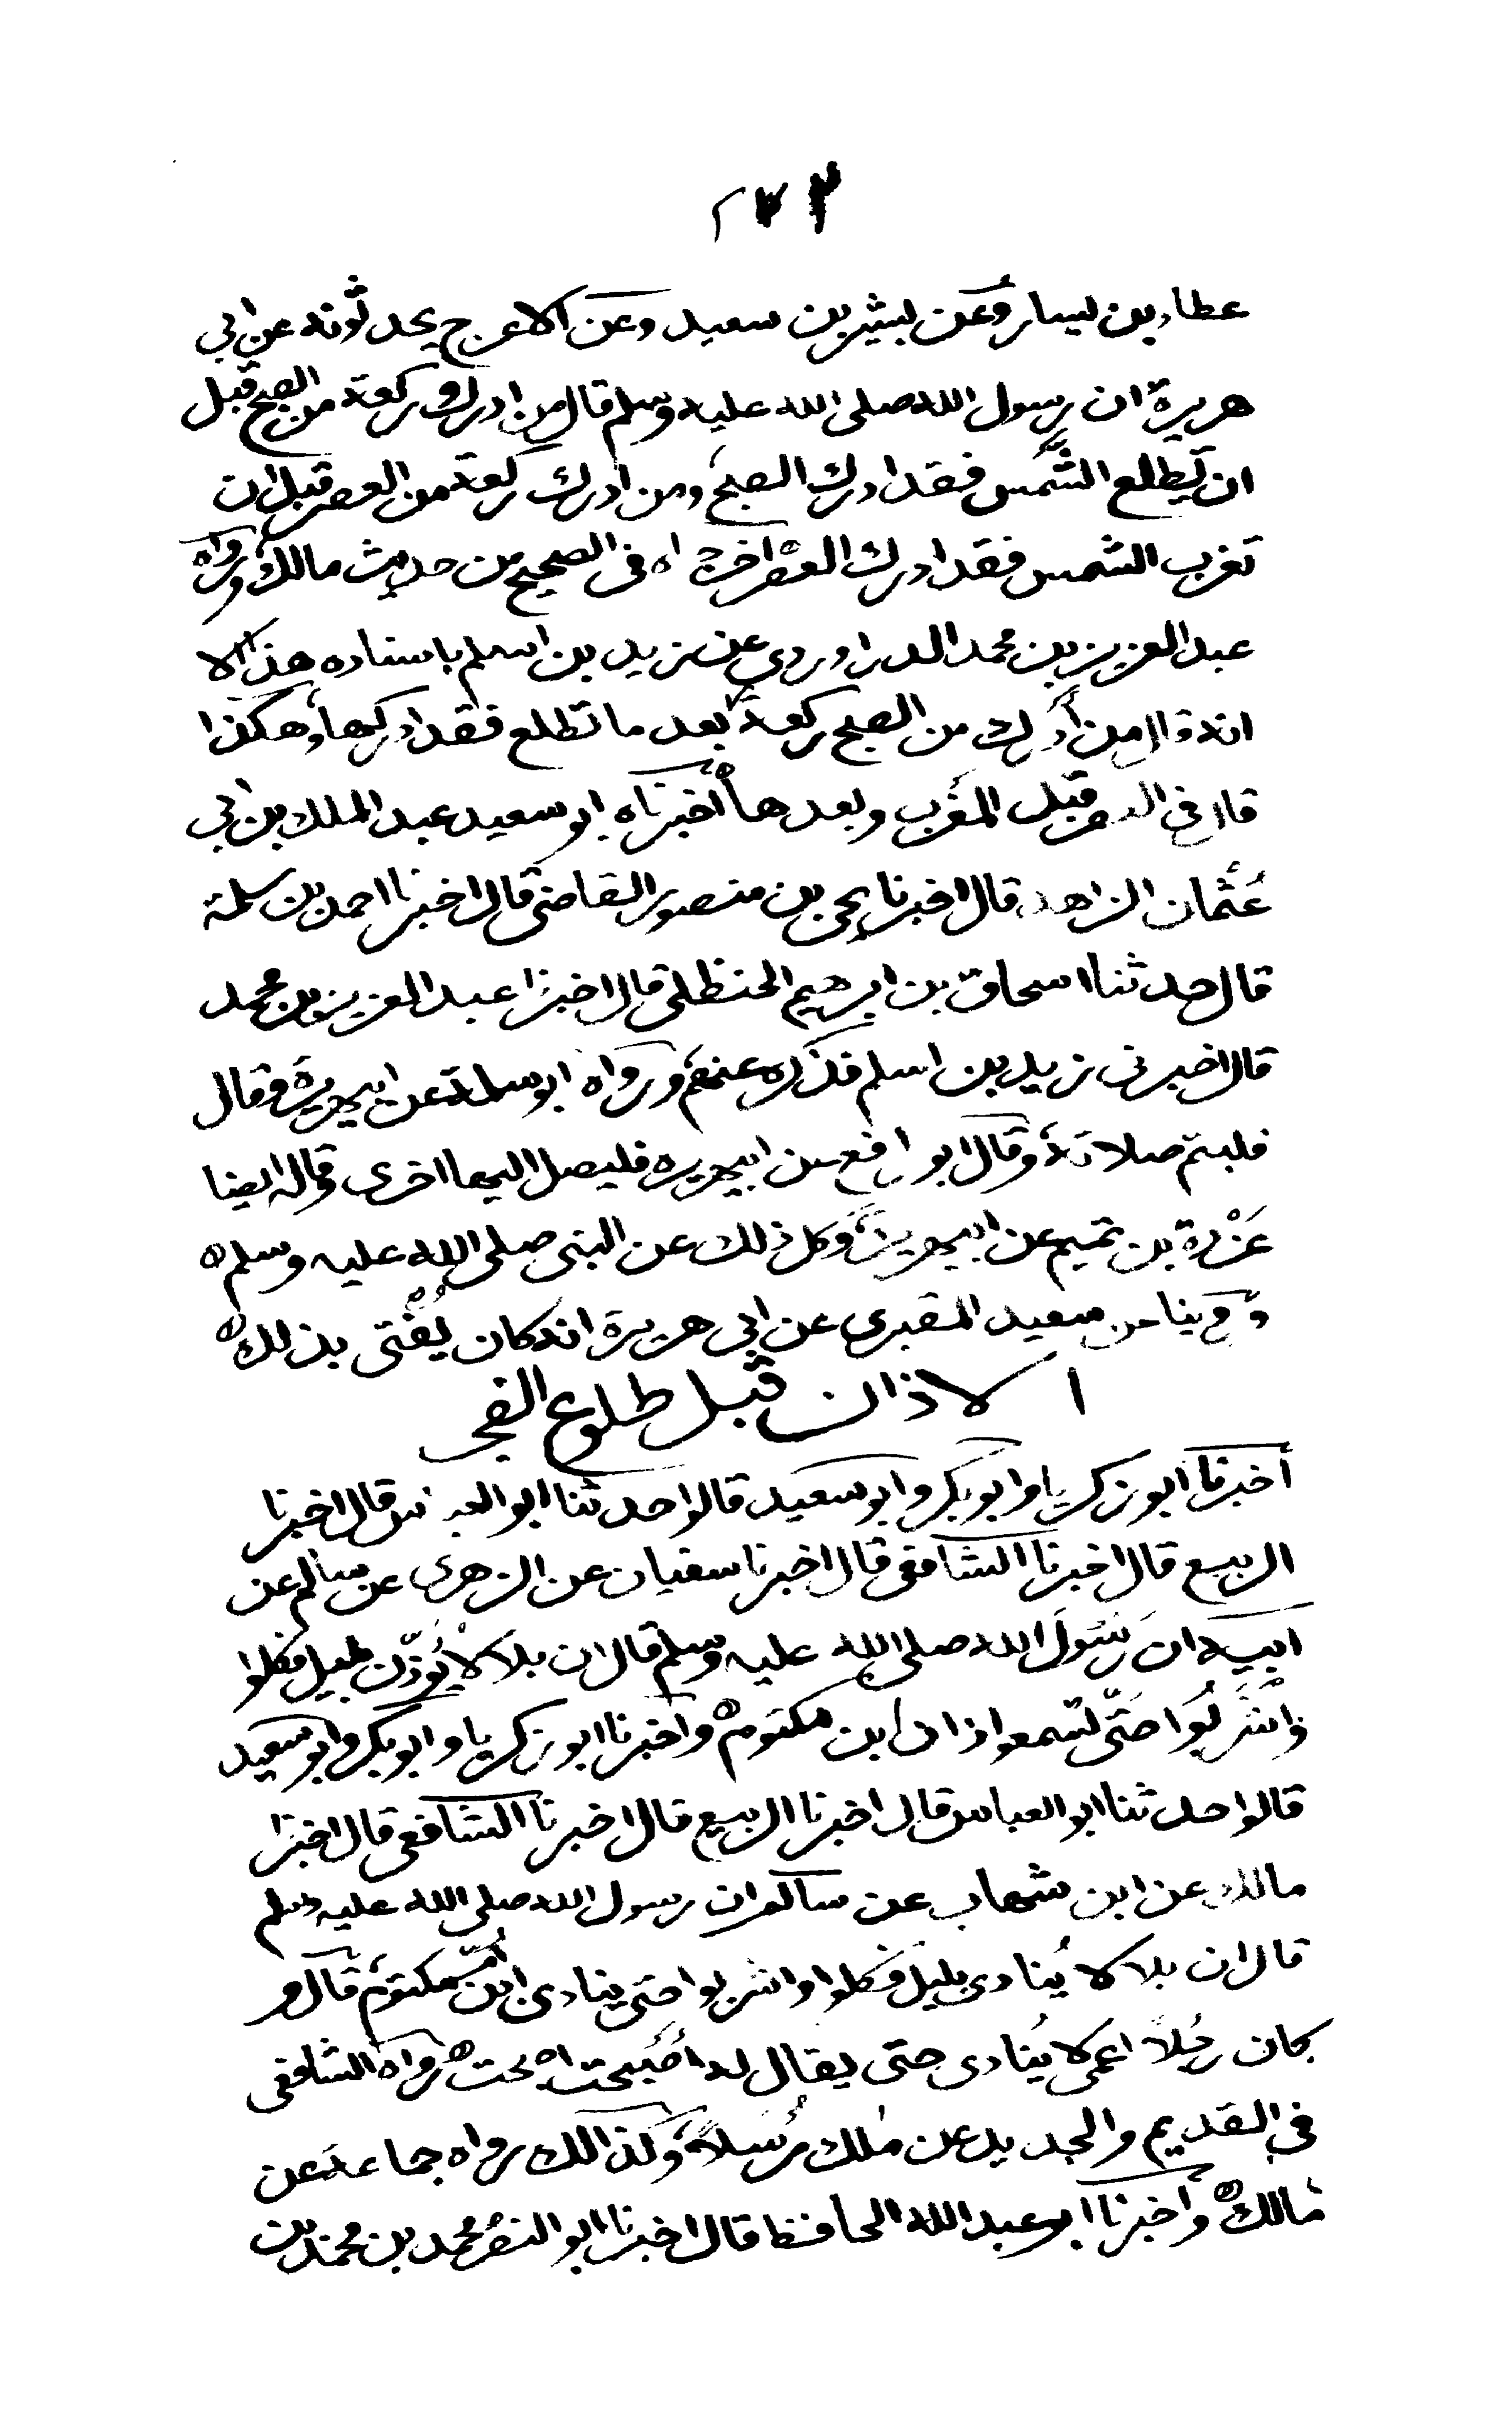 عطاء بن يسار وعن بشر بن سعيد وعن الاعرج يحدثونه عن ابي
هريرة ان رسول الله صلى الله عليه وسلم قال من ادرك ركعة من الصبح قبل
ان تطلع الشمس فقد ادرك الصبح ومن ادرك ركعة من العصر قبل ان
تغرب الشمس فقد ادرك العصر اخرجاه في الصحيح من حديث مالك ورواه
عبد العزيز بن محمد الدراوردي عن زيد بن اسلم باسناده هذا الا
انه قال من ادرك من الصبح ركعة بعد ما تطلع فقد ادركها وهكذا
قال في العصر قبل المغرب وبعدها اخبرناه ابو سعيد عبد الملك بن ابي
عُثمان الزاهد قال اخبرنا يحيى بن منصور القاضي قال اخبرنا احمد بن سلمة
قال حدثنا اسحاق بن ابرهيم الحنظلي قال اخبرنا عبد العزيز بن محمد
قال اخبرني زيد بن اسلم فذكره عنهم ورواه ابو سلمة عن ابي هريرة وقال
فليتم صلاته وقال ابو رافع عن ابي هريره فليصل اليها اخرى وقاله ايضا
عَزْرة بن تميم عن ابي هريرة وكل ذلك عن النبي صلى الله عليه وسلم ه
وروينا عن سعيد المقبري عن ابي هريرة انه كان يُفْتي بذلك ه
الاذان قبل طلوع الفجر
أخبرنا ابو زكريا وابو بكر وابو سعيد قالوا حدثنا ابو العباس قال اخبرنا
الربيع قال اخبرنا الشافعي قال اخبرنا سفيان عن الزهري عن سالم عن
ابيه ان رَسُولَ الله صلى الله عليه وسلم قال ان بلالا يُؤذّن بليل فكلوا
وَاشْرَبُوا حَتّى تسمعوا اذان ابن مكتوم ه واخبرنا ابو زكريا وابو بكر وابو سعيد
قالوا حدثنا ابو العباس قال اخبرنا الربيع قال اخبرنا الشافعي قال اخبرنا
مالك عن ابن شهاب عن سالم ان رسول الله صلى الله عليه وسلم
قال ان بلالا يُنادي بليل فكلوا واشربوا حتى ينادي ابن اُمّ مكتوم قال و
كان رجُلاً اعمى لا يُنادى حتى يقال له أصْبَحت اصبحت ه رواه الشافعي
في القديم والجديد عن مٰلك مُرْسَلاً وكذالك رواه جماعة عن
مالك ه وأخبرنا ابو عبد الله الحافظ قال اخبرنا ابو النضر محمد بن محمد بن